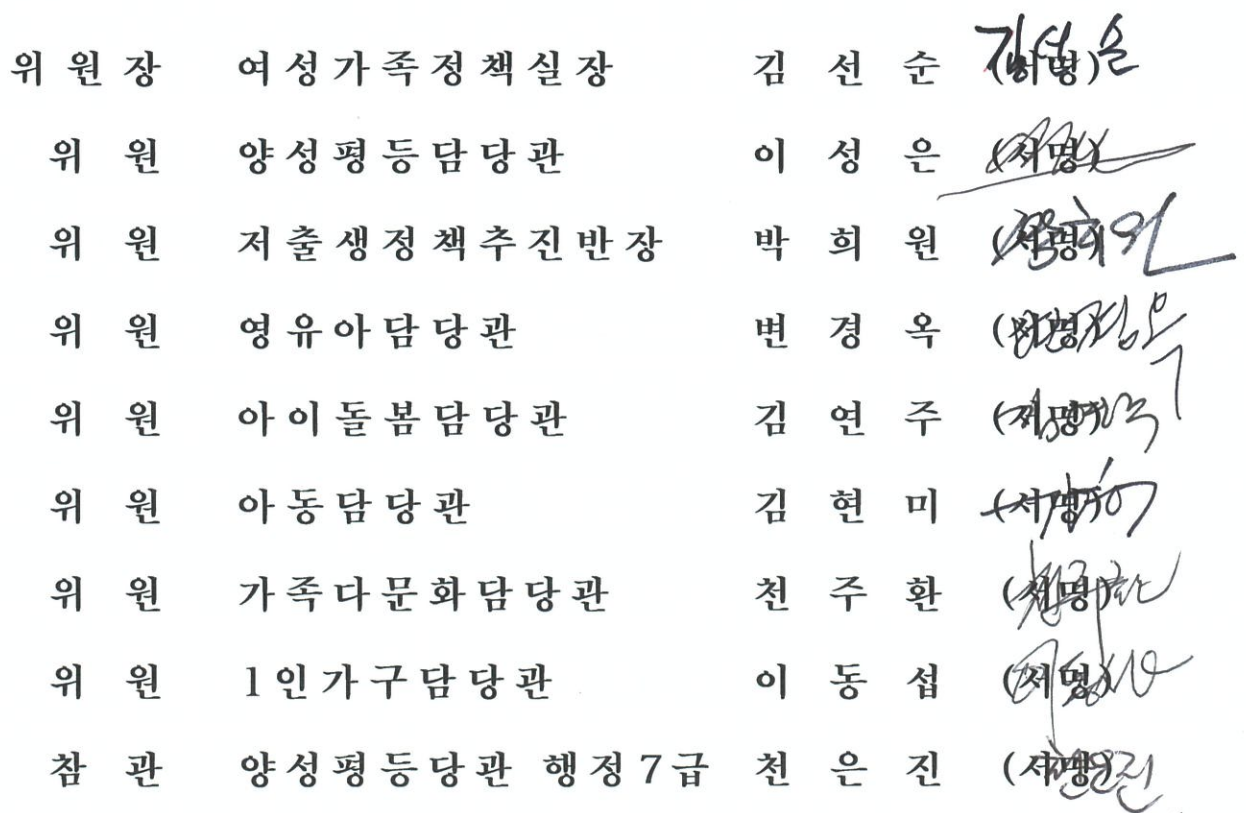 위 원 장 여성가족정책실장 김 선 순 (서명)
위 원 양성평등담당관 이 성 은 (서명)
위 원 저출생정책추진반장 박 희 원 (서명)
위 원 영유아담당관 변 경 옥 (서명)
위 원 아이돌봄담당관 김 연 주 (서명)
위 원 아동담당관 김 현 미 (서명)
위 원 가족다문화담당관 천 주 환 (서명)
위 원 1인가구담당관 이 동 섭 (서명)
참 관 양성평등당관 행정7급 천 은 진 (서명)